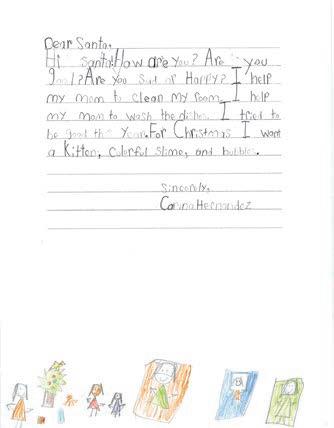 Dear Santa,
Hi Santa! How are you? Are you
good? Are you Sad or Happy? I help
my mom to clean my room. I help
my mom to wash the dishes. I tried to
be good this year. For Christmas I want
a Kitten, colorful slime, and bubbles.
Sincerely,
Carina Hernandez